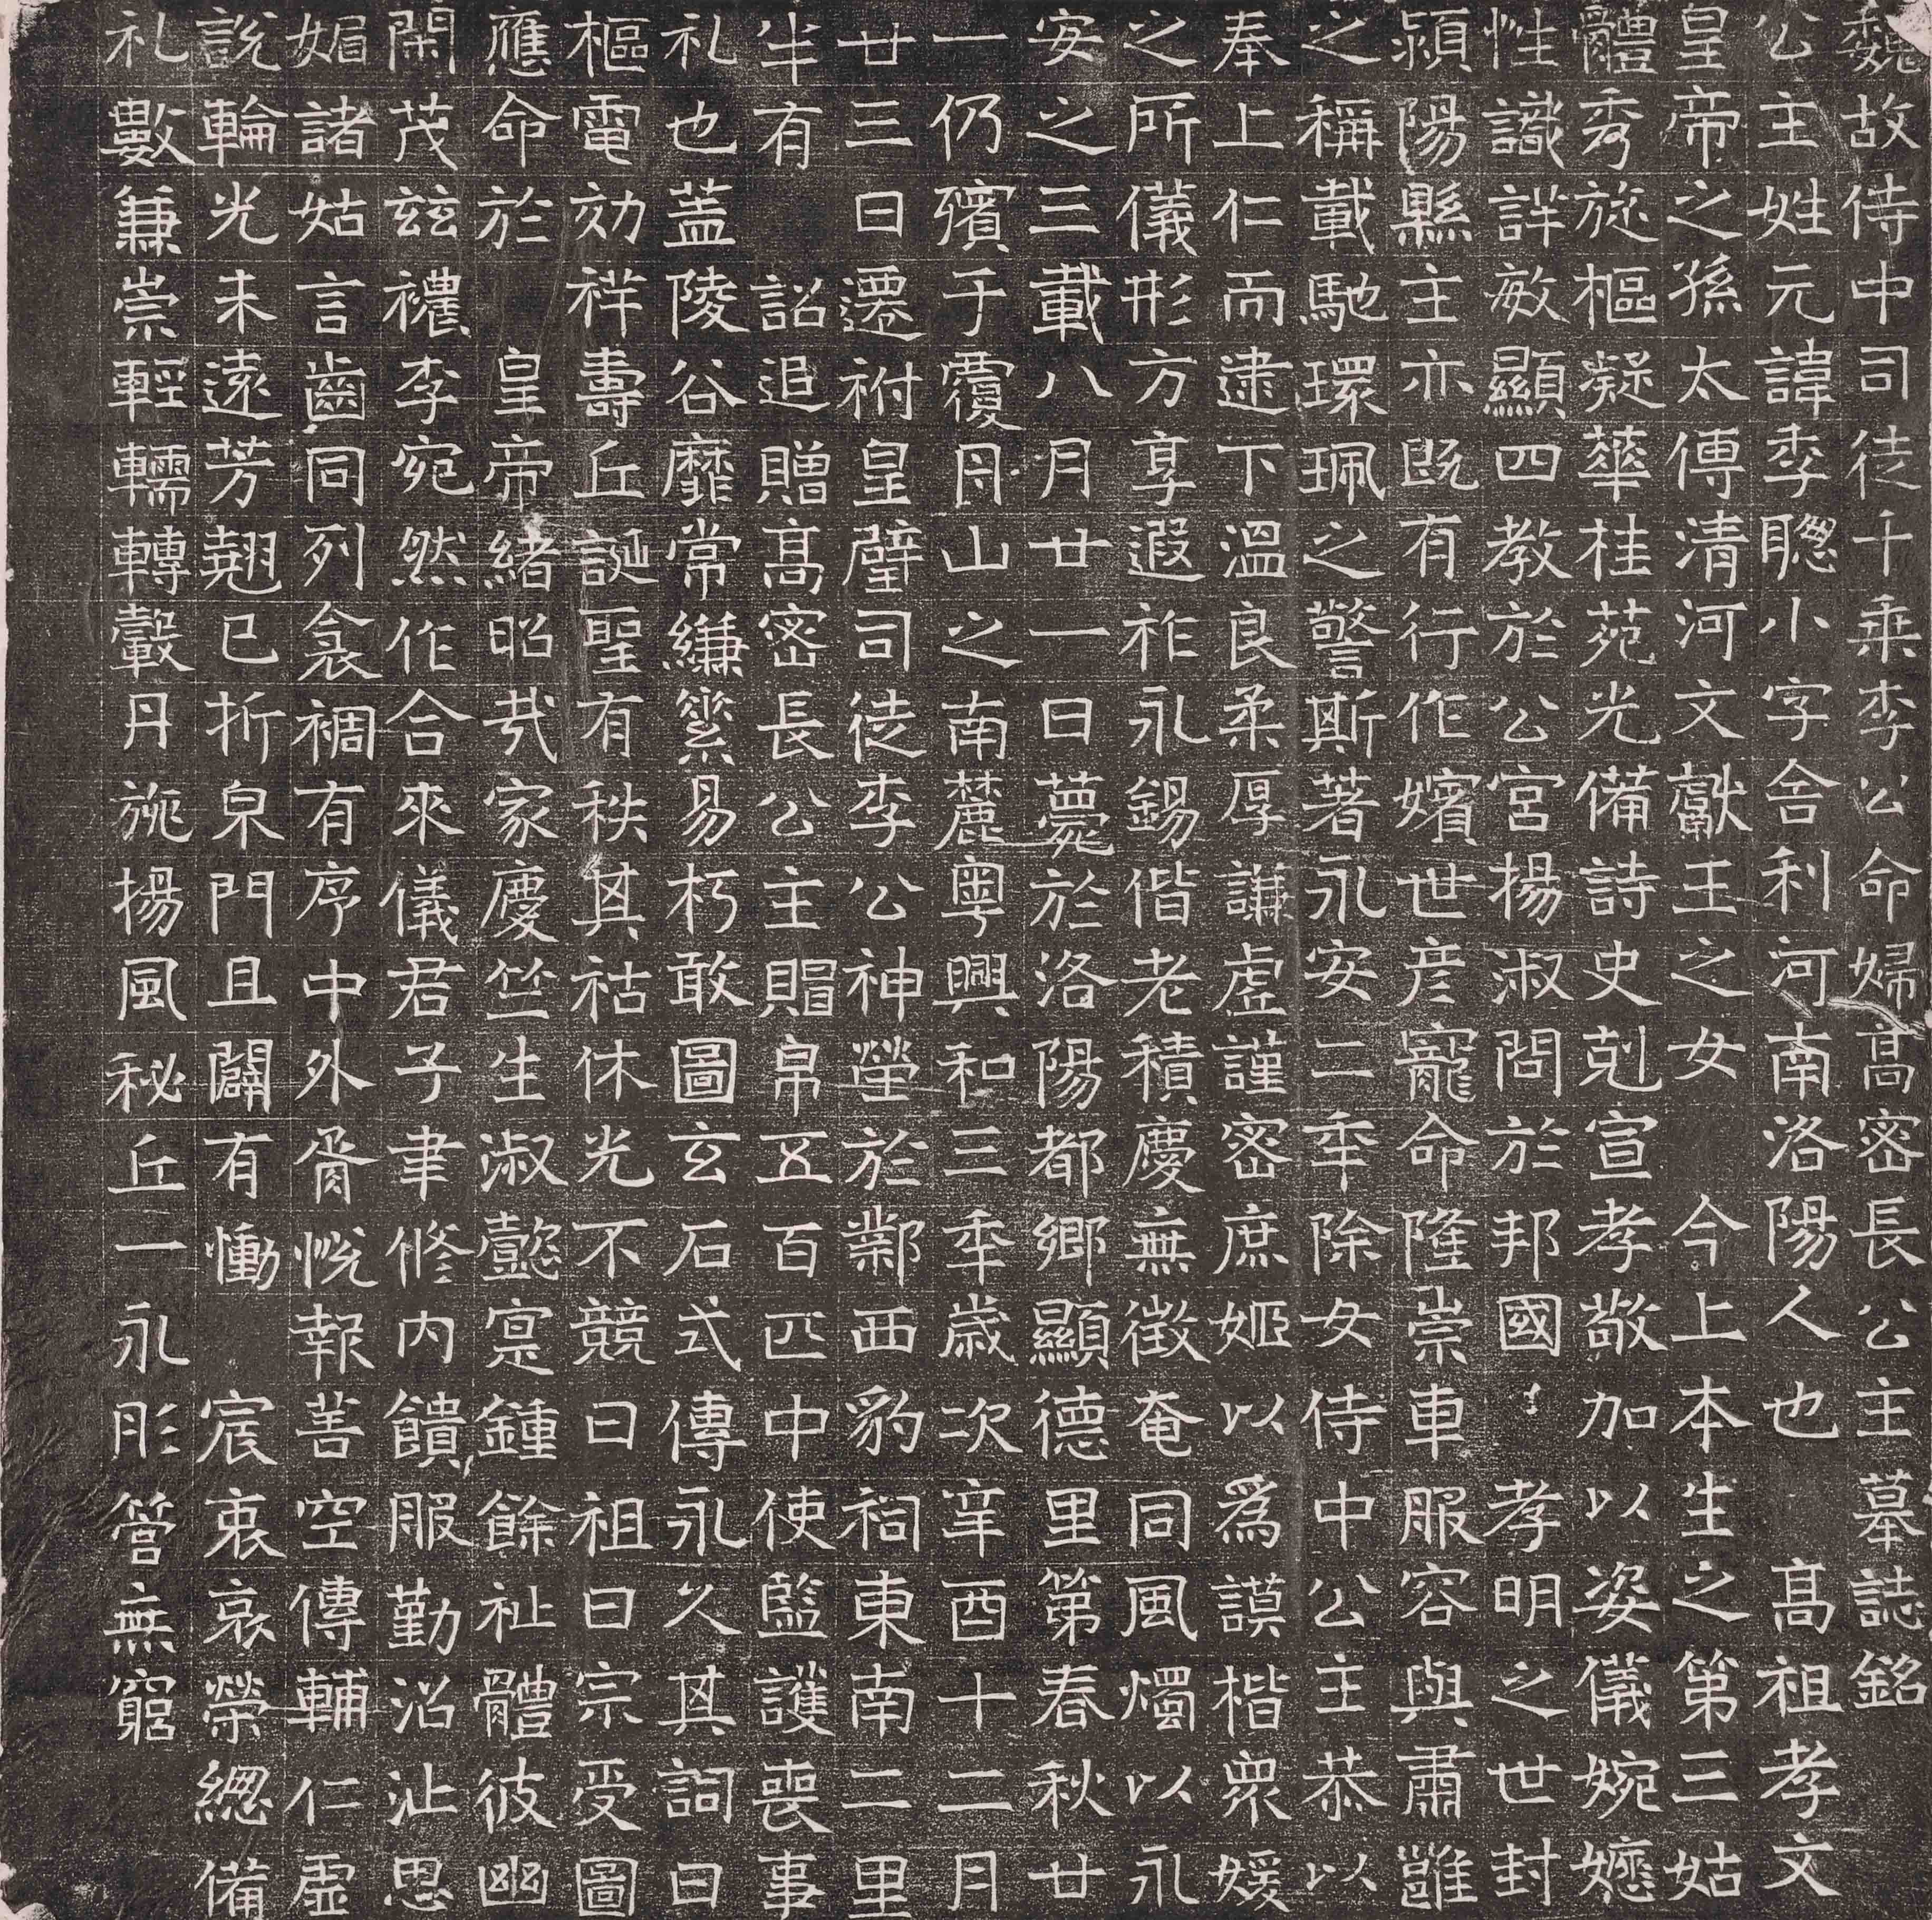 魏故侍中司徒千乘李公命婦高密長公主墓誌銘
公主姓元諱季聰小字舍利河南洛陽人也　高祖孝文
皇帝之孫太傅清河文獻王之女　今上本生之第三姑
體秀旋樞凝華桂苑光備詩史剋宣孝敬加以姿儀婉嫕
性識詳敏顯四教於公宮揚淑問於邦國　孝明之世封
潁陽縣主亦既有行作嬪世彥寵命隆崇車服容與肅雝
之稱載馳環珮之警斯著永安二年除女侍中公主恭以
奉上仁而逮下溫良柔厚謙虛謹密庶姬以爲謨楷衆媛
之所儀形方享遐祚永錫偕老積慶無徵奄同風燭以永
安之三載八月廿一日薨於洛陽都鄉顯德里第春秋廿
一仍殯于覆舟山之南麓粵興和三年歲次辛酉十二月
廿三日遷祔皇璧司徒李公神塋於鄴西豹祠東南二里
半有　詔追贈高密長公主賵帛五百匹中使監護喪事
礼也蓋陵谷靡常縑篆易朽敢圖玄石式傳永久其詞曰
樞電効祥壽丘誕聖有秩其祜休光不競曰祖曰宗受圖
應命於　皇帝緒昭哉家慶竺生淑懿寔鍾餘祉體彼幽
閑茂玆襛李宛然作合來儀君子聿修内饋服勤沼沚思
媚諸姑言齒同列衾裯有序中外胥悅報善空傳輔仁虛
說輪光未遠芳翹已折泉門且闢有慟　宸衷哀榮總備
礼數兼崇輕轜轉轂丹旐揚風秘丘一永彤管無窮